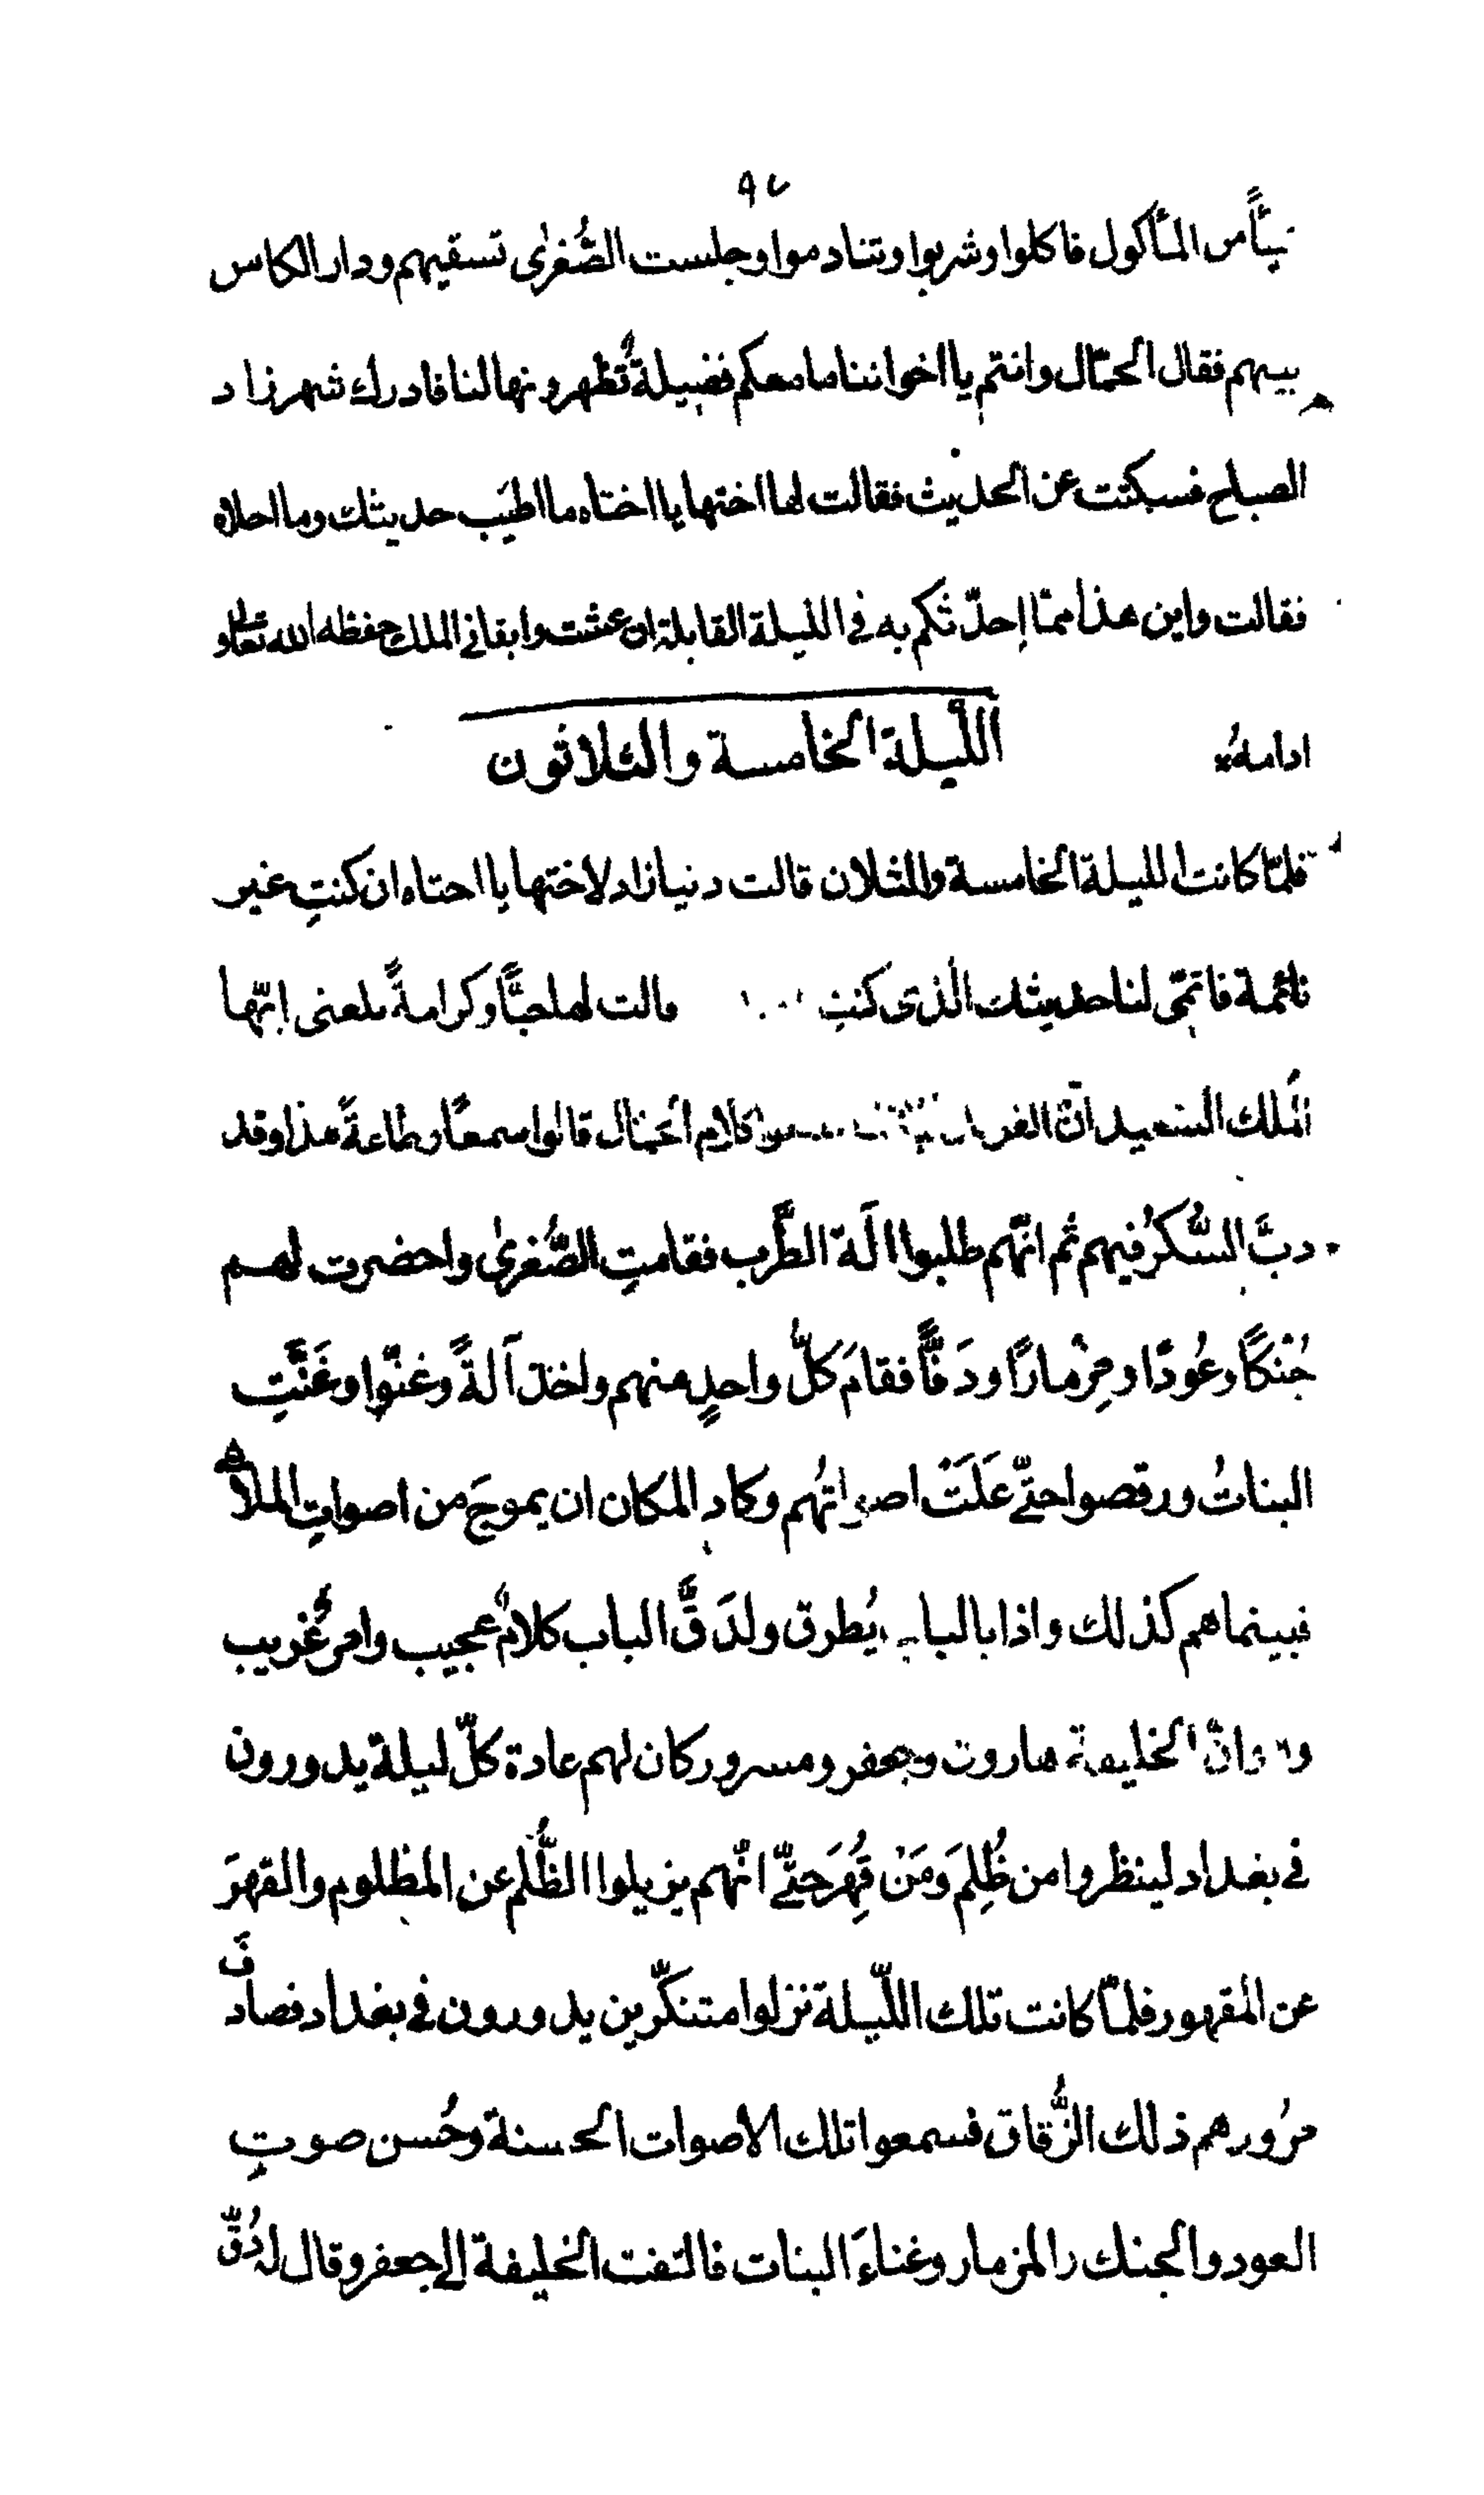 ٩٧
شيأً من المأكول فاكلوا وشربوا وتنادموا وجلست الصُّغرى تسقيهم ودار الكاس
بينهم فقال الحمّال وانتم يا اخواننا ما معكم فضيلةٌ تُظهرونها لنا فادرك شهرزاد
الصباح فسكتت عن الحديث فقالت لها اختها يا اختاه ما اطيَب حديثك وما احلاه
فقالت واين هذا ممّا احدّثكم به فى الليلة القابلة ان عشت وابقانى الملك حفظه الله تعالى و
ادامهُ
اللّيلة الخامسة والثلاثون
فلمّا كانت الليلة الخامسة والثلاثن قالت دنيازاد لاختها يا اختاه ان كنتِ غير
نائمة فاتمّى لنا حديثك الذى كنتِ قالت لها حبًّا وكرامةً بلغنى ايّها
المَلك السعيد انّ كلام الحمّال قالوا سمعاً وطاعةً هذا وقد
دبَّ السُّكرُ فيهم ثم انّهم طلبوا الَة الطَّرب فقامتِ الصُّغرى واحضرت لهم
جُنكًا وعُودًا ومِزْمارًا ودَفًّا فقامَ كلّ واحدٍ منهم واخذ آلةً وغنّوا وغَنَّتِ
البناتُ ورقصوا حتّى عَلَتْ اصواتُهم وكاد المكان ان يموجَ من اصواتِ الملاه
فبينما هم كذلك واذا بالباب يُطرق ولدَقَّ الباب كلامٌ عجيب وامرٌ غريب
وذاك انّ الخليفة هارون وجعفر ومسرور كان لهم عادة كلّ ليلة يدورون
فى بغداد لينظروا من ظُلِمَ ومَنْ قُهِرَ حتّى انّهم يزيلوا الظُّلم عن المظلوم والقهرَ
عن المقهور فلمّا كانت تلك اللّيلة نزلوا متنكّرين يدورون فى بغداد فصادَفَ
مرُورهم ذلك الزُّقاق فسمعوا تلك الاصوات الحسنة وحُسن صوتِ
العود والجنك والمزمار وغناءَ البنات فالتفت الخليفة الى جعفر وقال له دُقّ